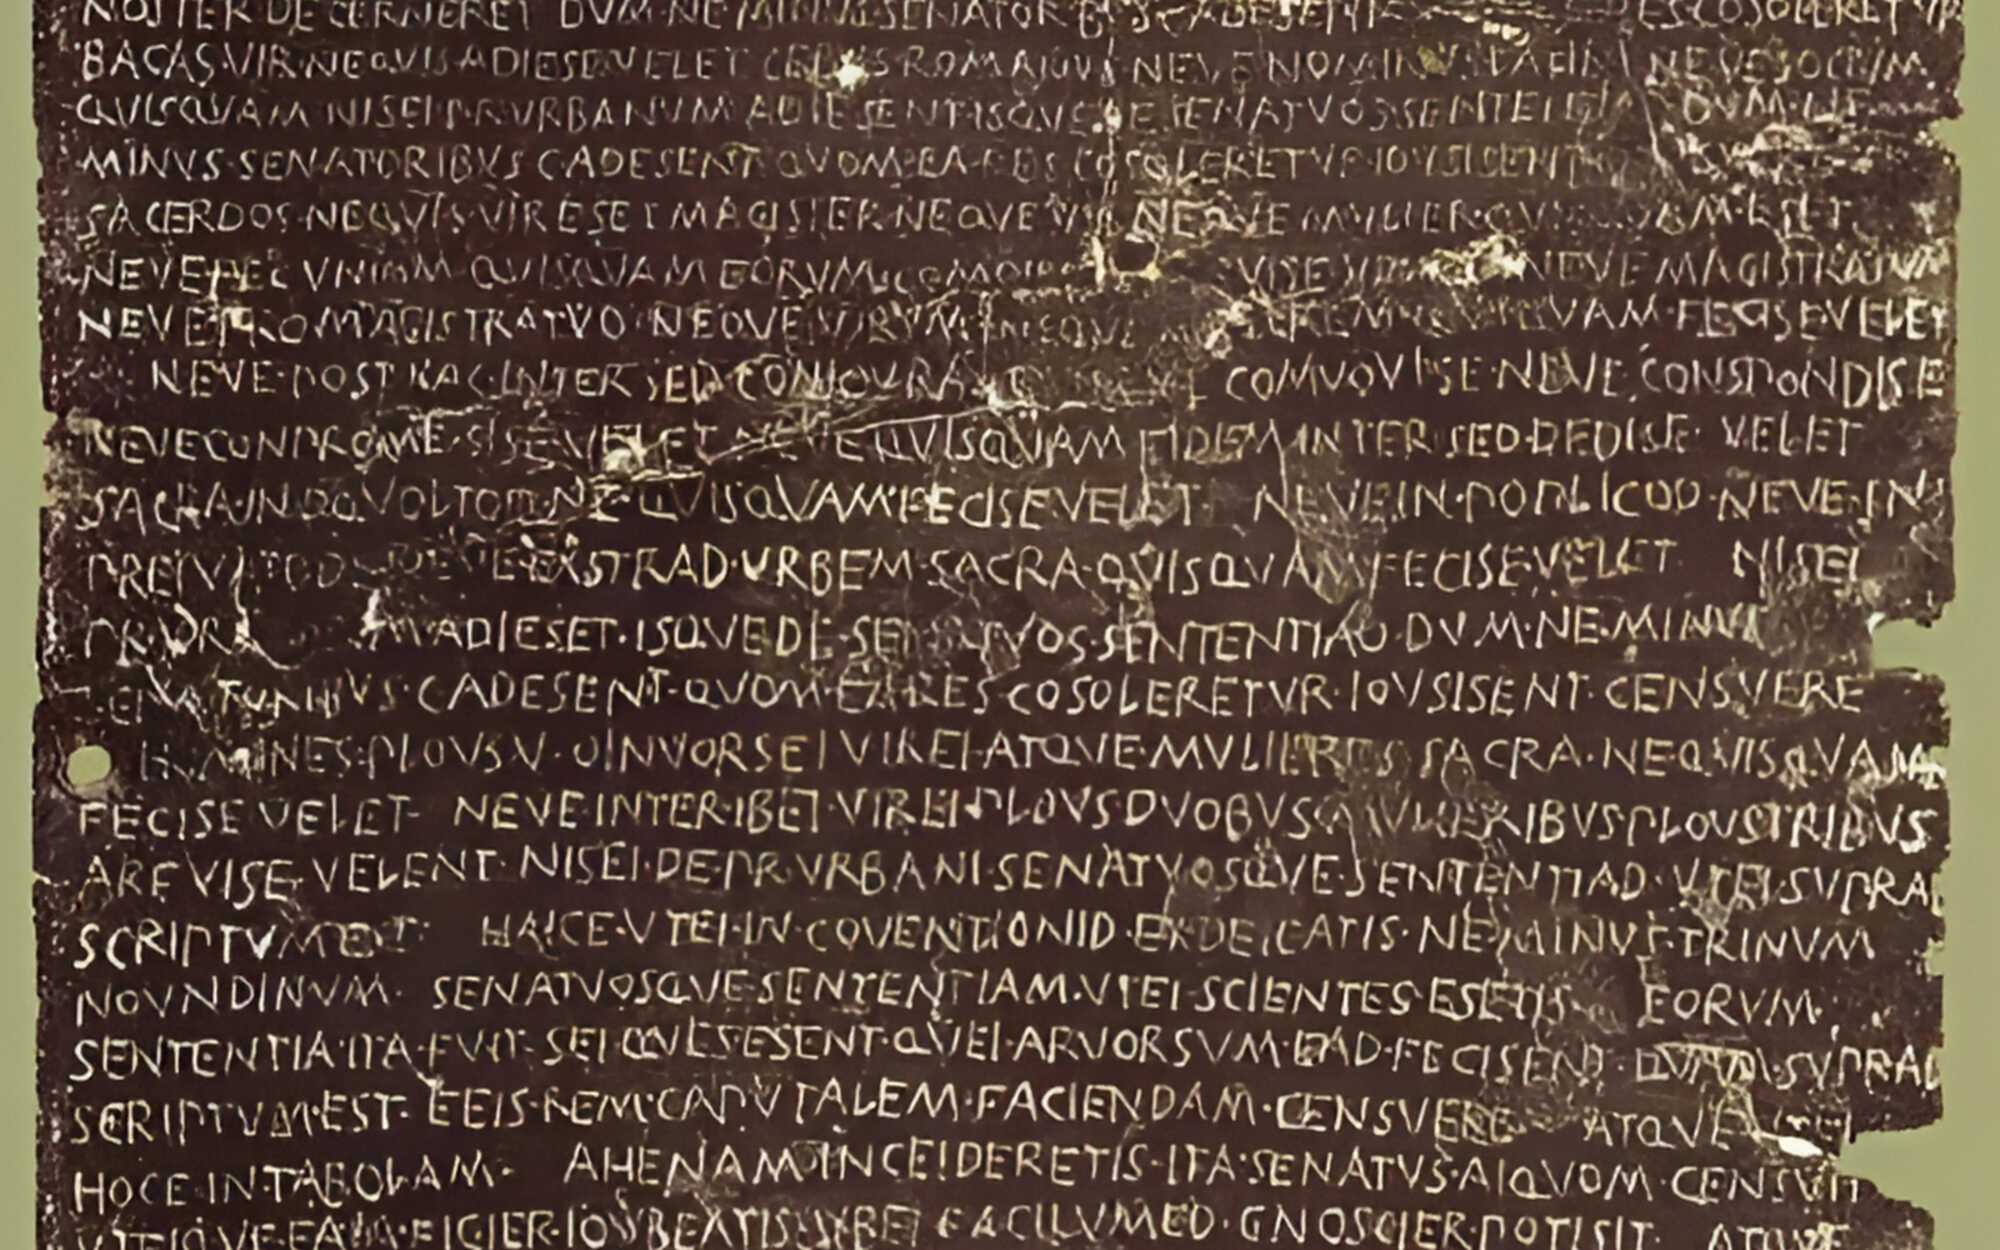 NOSTER DECERNERET DVM NE MINVS SENATORBVS C ADESENT COSOLERETVR
BACAS VIR NEQVIS ADIESE VELET CEIVIS ROMANVS NEVE NOMINVS LATINI NEVE SOCIVM
QVISQVAM NISEI PR VRBANVM ADIESENT ISQVE DE SENATVOS SENTENTIAD DVM NE
MINVS SENATORIBVS C ADESENT QVOM EA RES COSOLERETVR IOVSISENT
SACERDOS NEQVIS VIR ESET MAGISTER NEQVE VIR NEQVE MVLIER QVISQVAM ESET
NEVE PECVNIAM QVISQVAM EORVM COMOINE VISE NEVE MAGISTRATVM
NEVE PRO MAGISTRATVO NEQVE VIRVM NEQVE QVISQVAM FECISE VELET
NEVE POST HAC INTER SED CONIOVRA COMVOVISE NEVE CONSPONDISE
NEVE CONPROMESISE VELET NEVE QVISQVAM FIDEM INTER SED DEDISE VELET
SACRA IN OQVOLTOD NE QVISQVAM FECISE VELET NEVE IN POPLICOD NEVE IN
PREIVATOD NEVE EXSTRAD VRBEM SACRA QVISQVAM FECISE VELET NISEI
PR VRBANVM ADIESET ISQVE DE SENATVOS SENTENTIAD DVM NE MINVS
SENATORIBVS C ADESENT QVOM EA RES COSOLERETVR IOVSISENT CENSVERE
HOMINES PLOVS V OINVORSEI VIREI ATQVE MVLIERES SACRA NE QVISQVAM
FECISE VELET NEVE INTER IBEI VIREI PLOVS DVOBVS MVLIERIBVS PLOVS TRIBVS
ARFVISE VELENT NISEI DE PR VRBANI SENATVOSQVE SENTENTIAD VTEI SVPRAD
SCRIPTVM EST HAICE VTEI IN COVENTIONID EXDEICATIS NE MINVS TRINVM
NOVNDINVM SENATVOSQVE SENTENTIAM VTEI SCIENTES ESETIS EORVM
SENTENTIA ITA FVIT SEI QVES ESENT QVEI ARVORSVM EAD FECISENT QVAM SVPRAD
SCRIPTVM EST EEIS REM CAPVTALEM FACIENDAM CENSVERE ATQVE VTEI
HOCE IN TABOLAM AHENAM INCEIDERETIS ITA SENATVS AIQVOM CENSVIT
VTEIQVE EAM FIGIER IOVBEATIS VBEI FACILVMED GNOSCIER POTISIT ATQVE